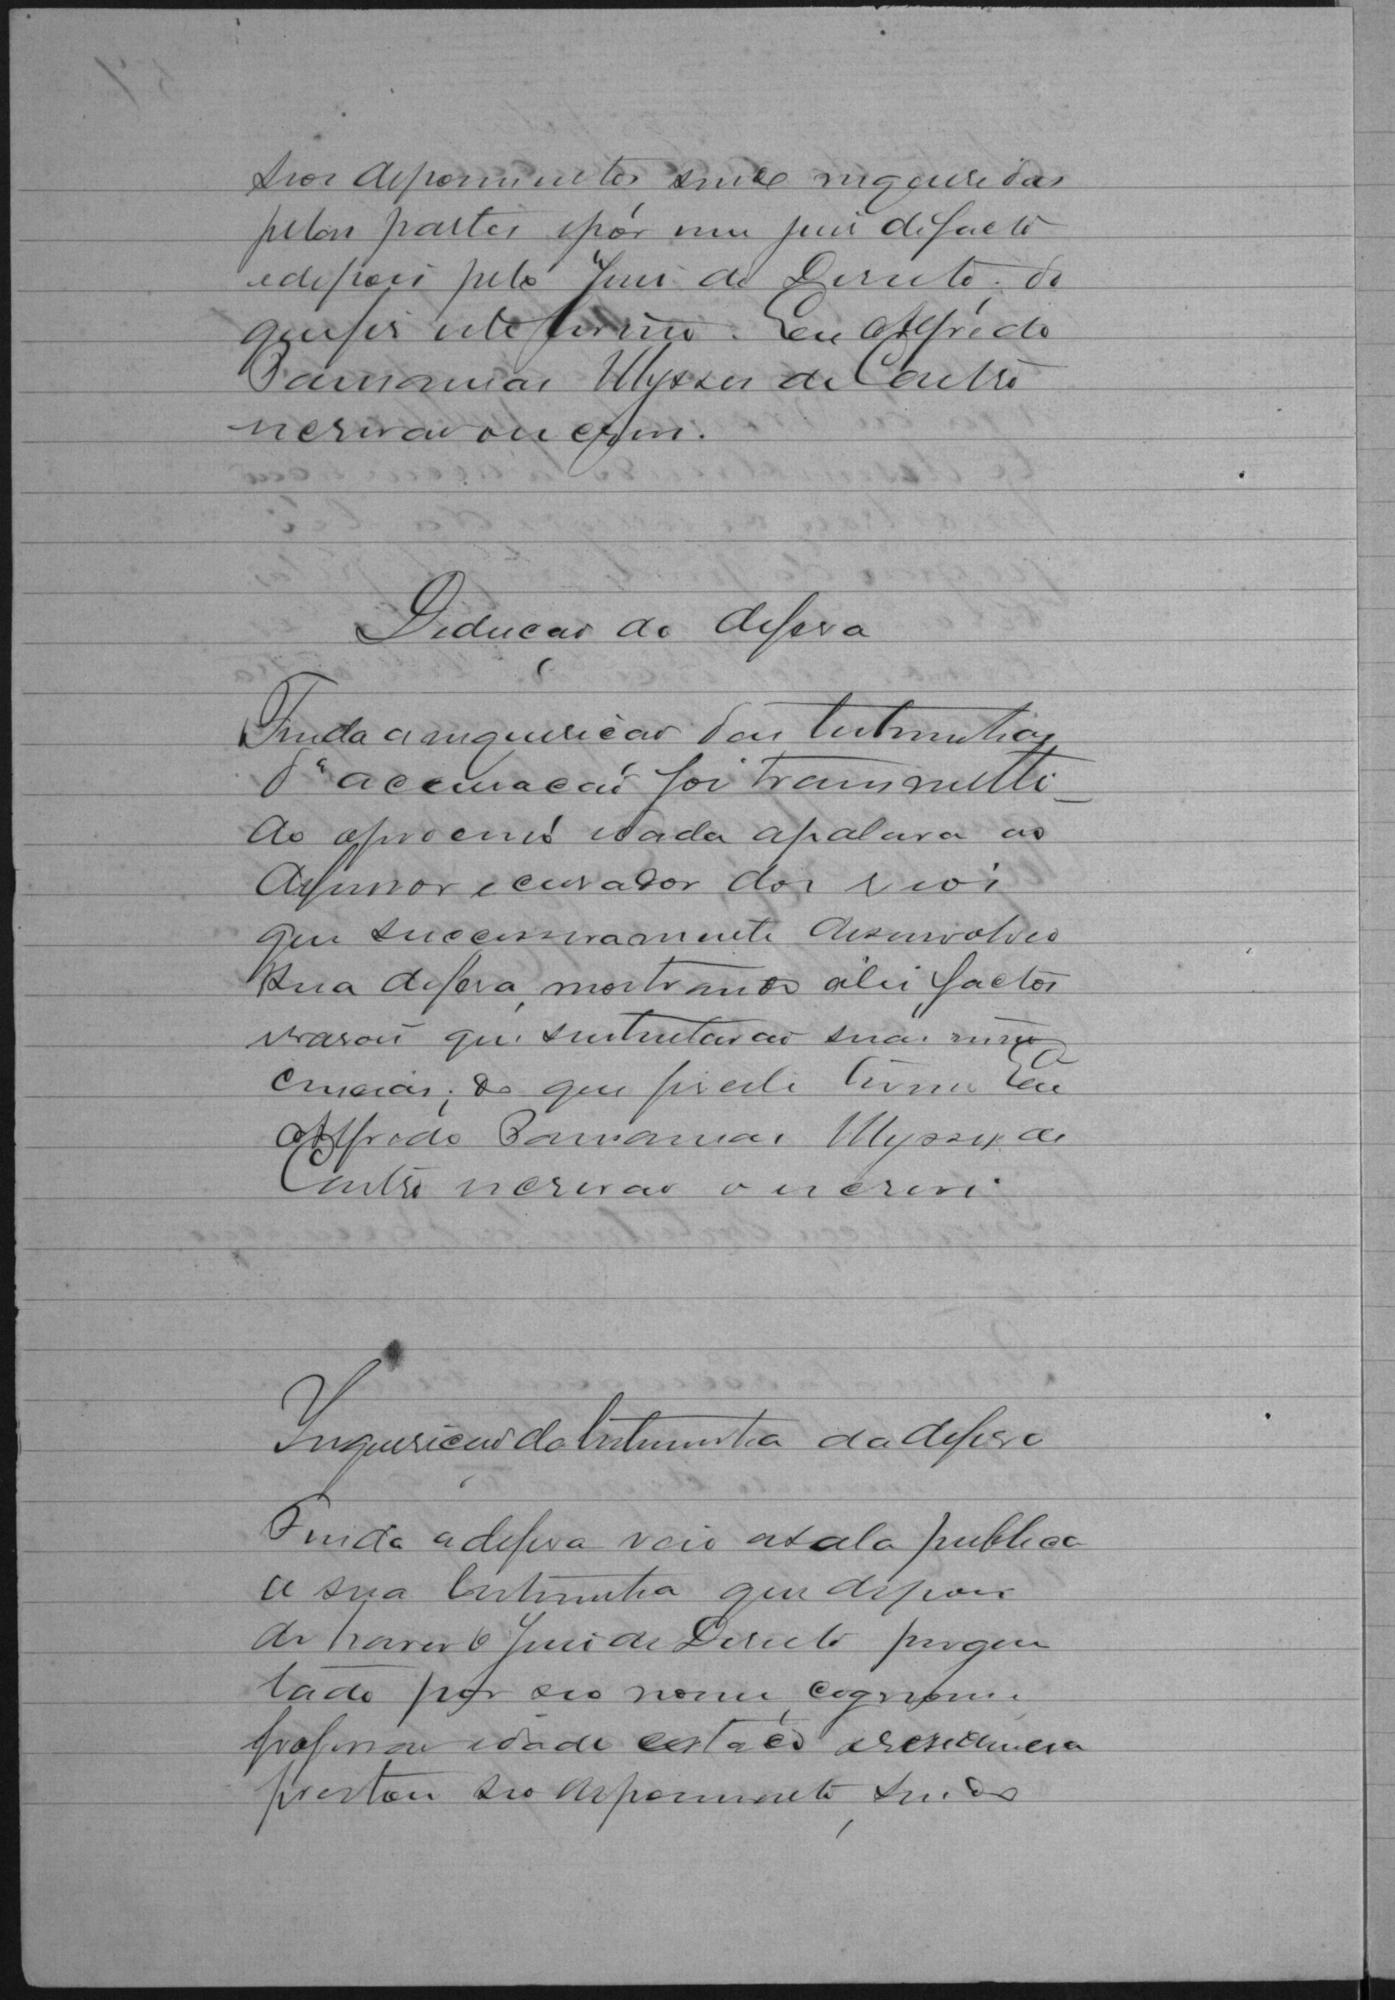 seos depoimentos sendo inqueridas
pelas partes e por um juis de facto
e depois pelo Juis de Direito; do
que fis este termo. Eu Alfredo
Ulysses de Castro
escrivão o escrevi.
Deducção da defesa
Finda a inquerição das testemunhas
da accusação foi transmetti-
do o processo e dada a palavra ao
defensor e curador dos reos
que successivamente desenvolveo
sua defesa, mostrando a lei, factos
e rasoes que sustentavão sua inno
cencia; do que fis este termo Eu
Alfredo Ulysses de
Castro escrivão o escrevi.
Inquerição da testemunha da defesa
Finda a defesa veio a sala publica
a sua testemunha que depois
de haver o Juis de Direito pergun
tado por seo nome, cognome,
profissão idade estado e residencia
prestou seo depoimento, sendo